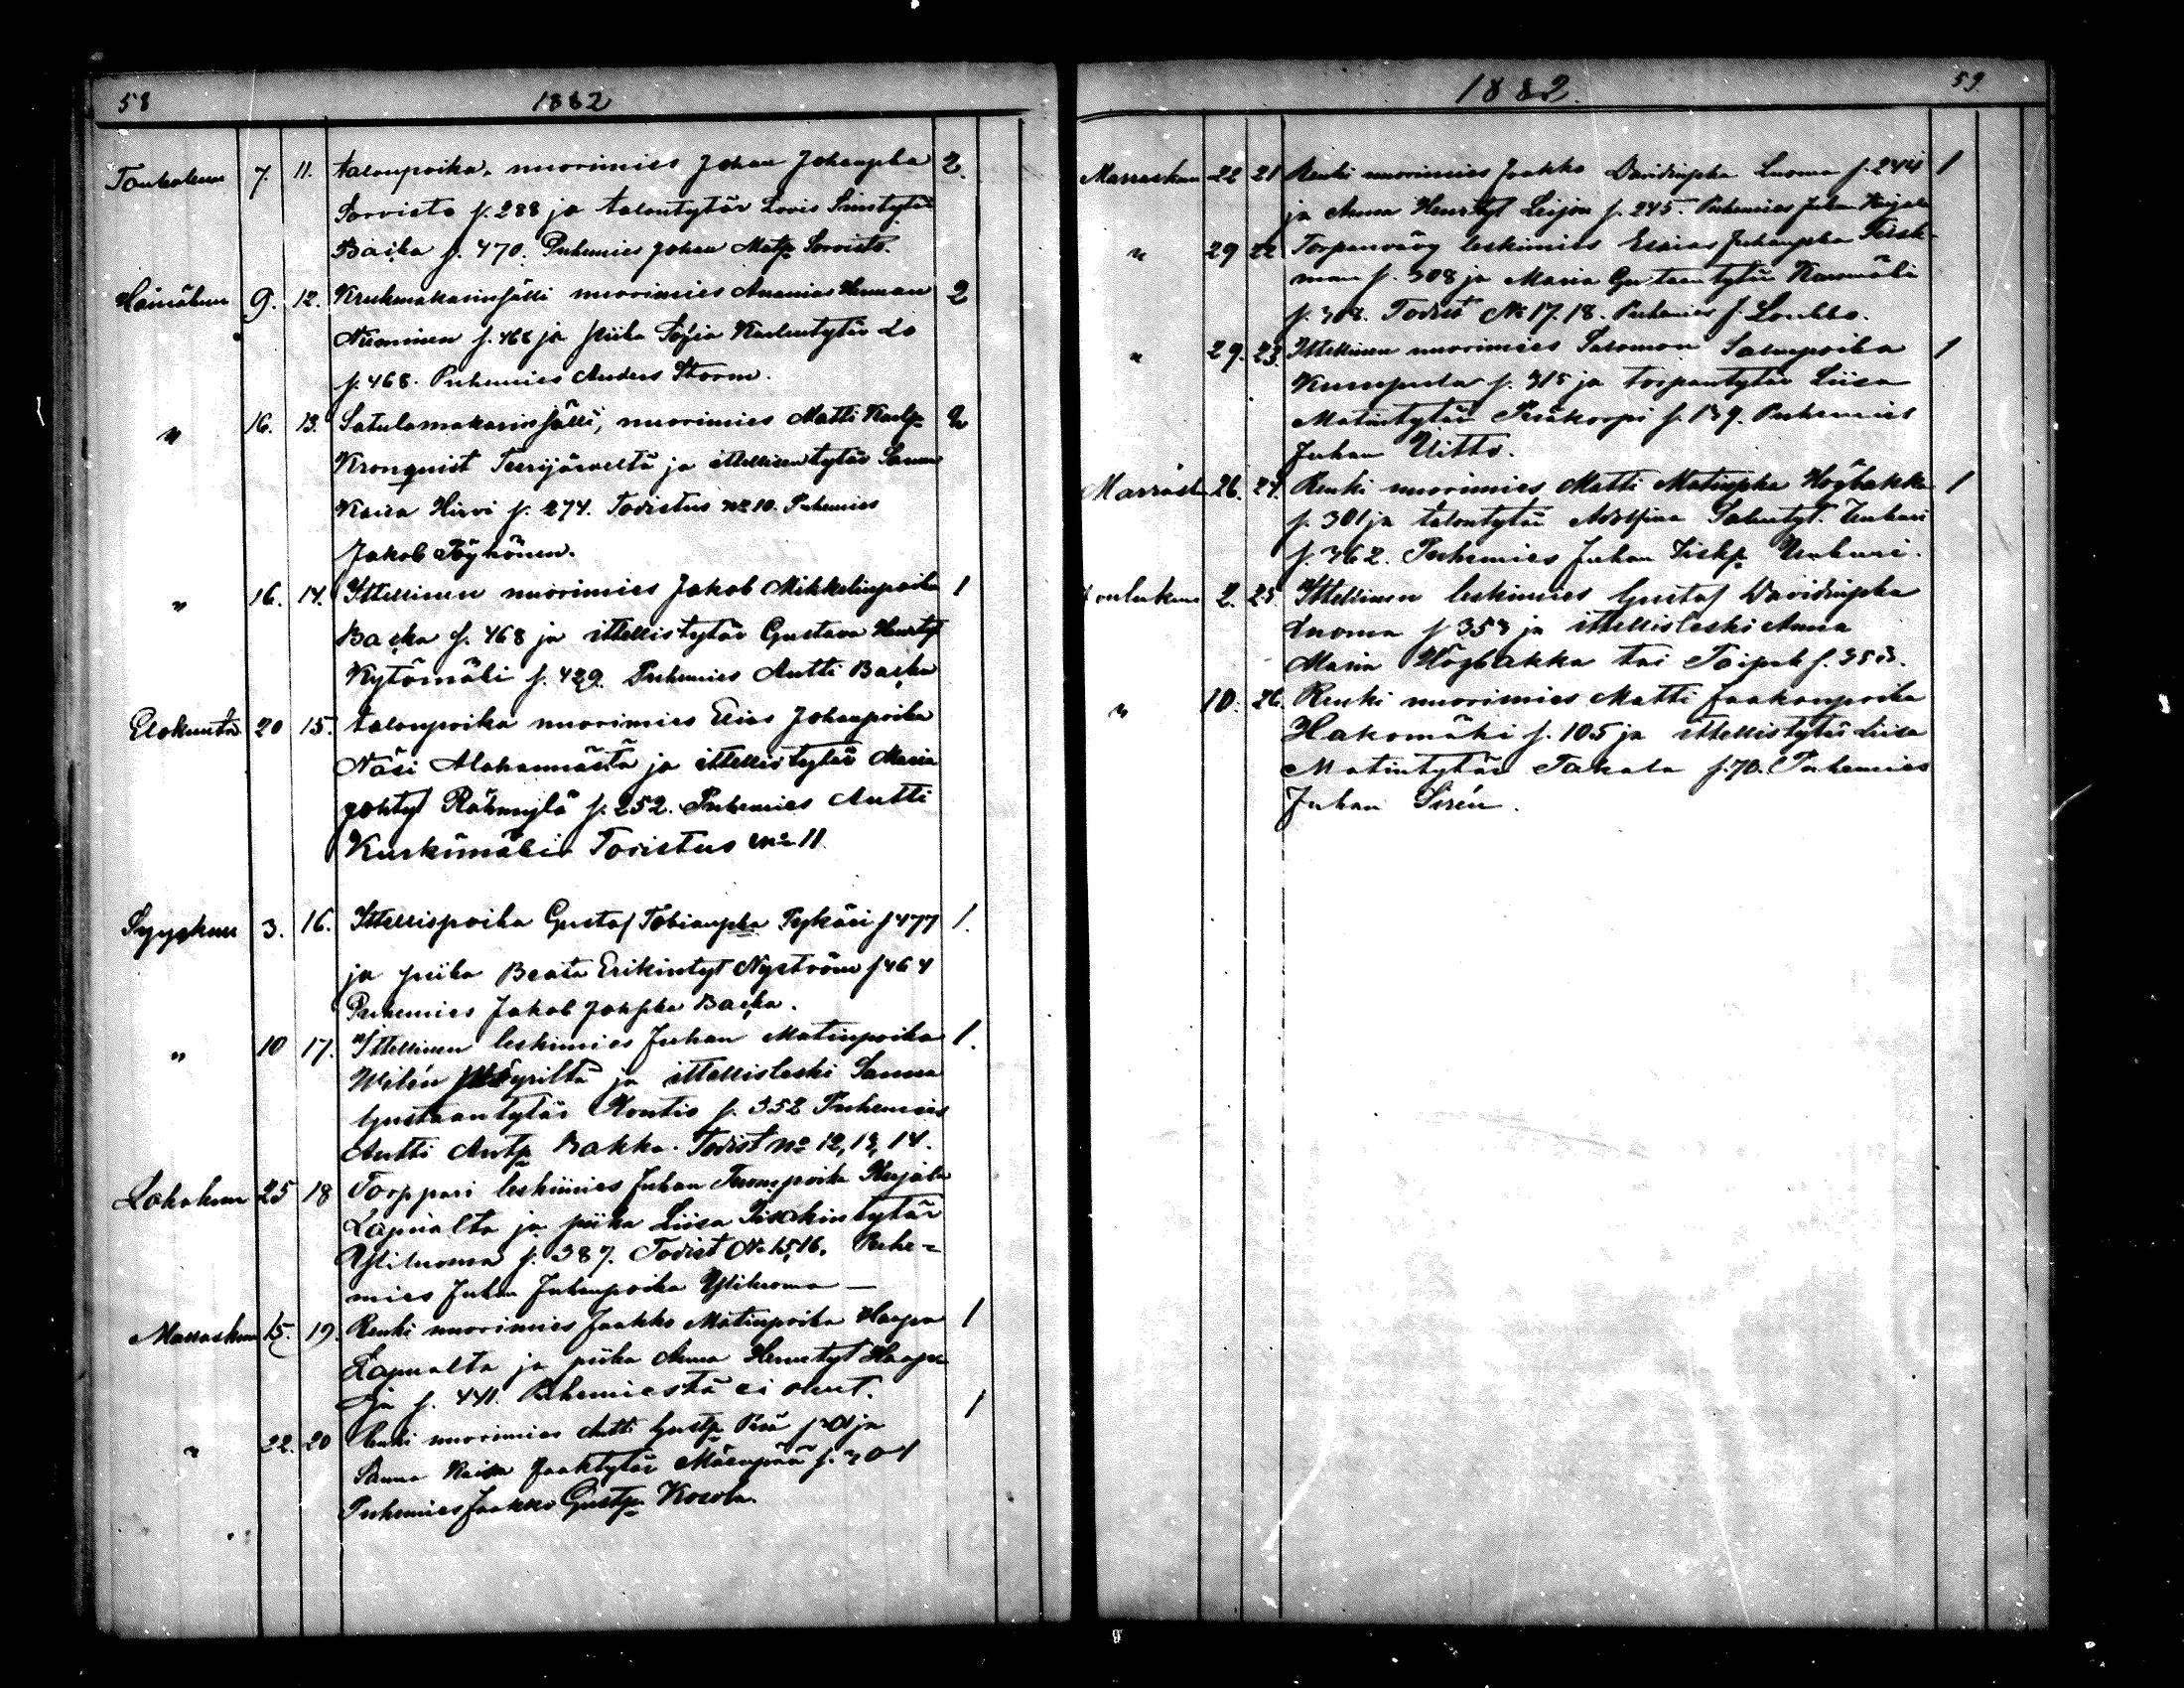 58 1882
Toukokuu 7. 11. talonpoika, nuorimies Johan Johanpka 2.
Sorvisto s. 288 ja talontytär Lovis Simstytär
Backa s. 470. Puhemies Johan Matp. Sorvisto.
Heinäkuu 9. 12. Krukmakarinsälli nuorimies Ananias Herman 2
Nieminen s. 468 ja piika Sofia Kaalentytär Lo
s. 468. Puhemies Anders Storm.
" 16. 13. Satulamakarinsälli, nuorimies Matti Kaalp. 2
Kronqvist Teerijärveltä ja ittellisentytär Sanna
Kaisa Hirvi s. 274. Todistus No 10. Puhemies
Jakob Töyhönen.
" 16. 14. Ittellinen nuorimies Jakob Mikkelinpoika 1
Backa s. 468 ja ittellistytär Gustava Henrtyt
Kytömäki s. 429. Puhemies Antti Backa
Elokuuta 20 15. talonpoika nuorimies Elias Johanpoika
Näsi Alahärmästä ja ittellistytär Maria
Johtyt s. 252. Puhemies Antti
Kurkimäki Todistus No 11
Syyskuu 3. 16. Ittellispoika Gustaf Tobianpka Pykäri s 477 1.
ja piika Beata Erikintyt Nyström s 464
Puhemies Jakob Johpka Backa.
" 10 17. Ittellinen leskimies Juhan Matinpoika 1.
Wilén ja ittellisleski Sanna
Gustaantytär Kontio s. 352 Puhemies
Antti Antp. Bakka. Todist No 12, 13, 14.
Lokakuu 25 18 Torppari leskimies Juhan Tuomp.poika
Lapualta ja piika Liisa Iisakintytär
Ylituoma s. 387. Todist No 15, 16. Puhe=
mies Juhan Juhanpoika Ylituoma —
Marraskuu 15. 19. Renki nuorimies Jaakko Matinpoika Haapa 1
Lapualta ja piika Anna Henrtyt Haapa
oja s. 441. Puhemiestä ei ollut.
" 22. 20 Renki nuorimies Antti Gustp. ja 1
Sanna Kaisa Jaaktytär s. 301
Puhemies Jaakko Gustp. Kosola.
1882. 59.
Marraskuu 22 21 Renki nuorimies Jaakko Davidinpka Luoma s. 244 1
ja Anna Henrtyt Leijon s. 245. Puhemies Juhan
" 29 22 Torpanvävy leskimies Esaias Juhanpka
man s. 308 ja Maria Gustaantytär
s. 308. Todist No 17. 18. Puhemies J. Loukko.
" 29. 23. Ittellinen nuorimies Salomon Salunpoika 1
Kumpula s. 315 ja torpantytär Liisa
Matintytär Peräkorpi s. 139. Puhemies
Juhan Uitto.
Marrask 26. 24. Renki nuorimies Matti Matinpka Högbakka 1
s. 301 ja talontytär Adolfina Salutyt. Unkuri
s. 362. Puhemies Juhan Iiskp. Unkuri.
Joulukuu 2. 25. Ittellinen leskimies Gustaf Davidinpka
Luoma s 353 ja ittellisleski Anna
Maria Högbakka tai s. 353.
" 10. 26. Renki nuorimies Matti Jaakonpoika
Hakomäki s. 105 ja ittellistytär Liisa
Matintytär Takala s. 70. Puhemies
Juhan Sirén.